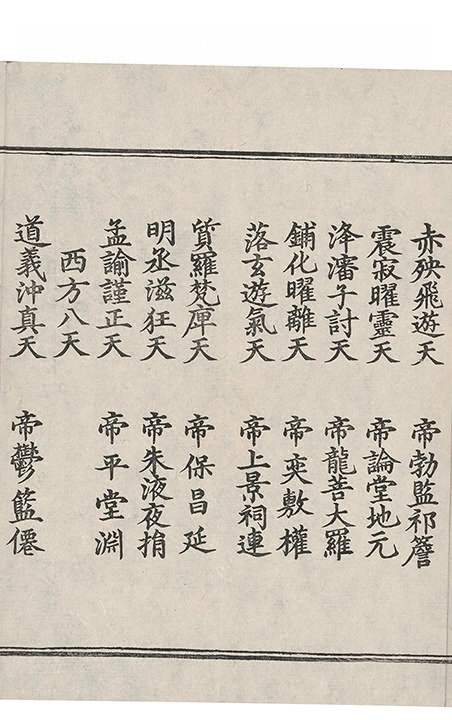 赤殃飛遊天 帝勃監祁簷
震寂曜靈天 帝論堂地元
泽瀋子討天 帝龍菩大羅
鋪化曜離天 帝奕敷權
落玄遊氣天 帝上景祠連
質羅梵庫天 帝保昌延
明丞滋狂天 帝朱液夜捐
孟諭謹正天 帝平堂淵
西方八天
道義沖真天 帝鬱籃僊